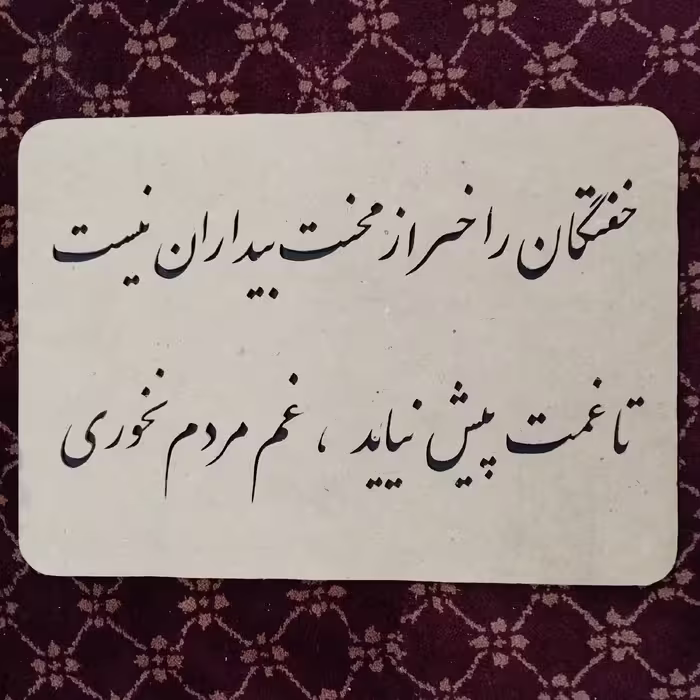 خفتگان را خبر از محنت بیداران نیست
تا غمت پیش نیاید ، غم مردم نخوری